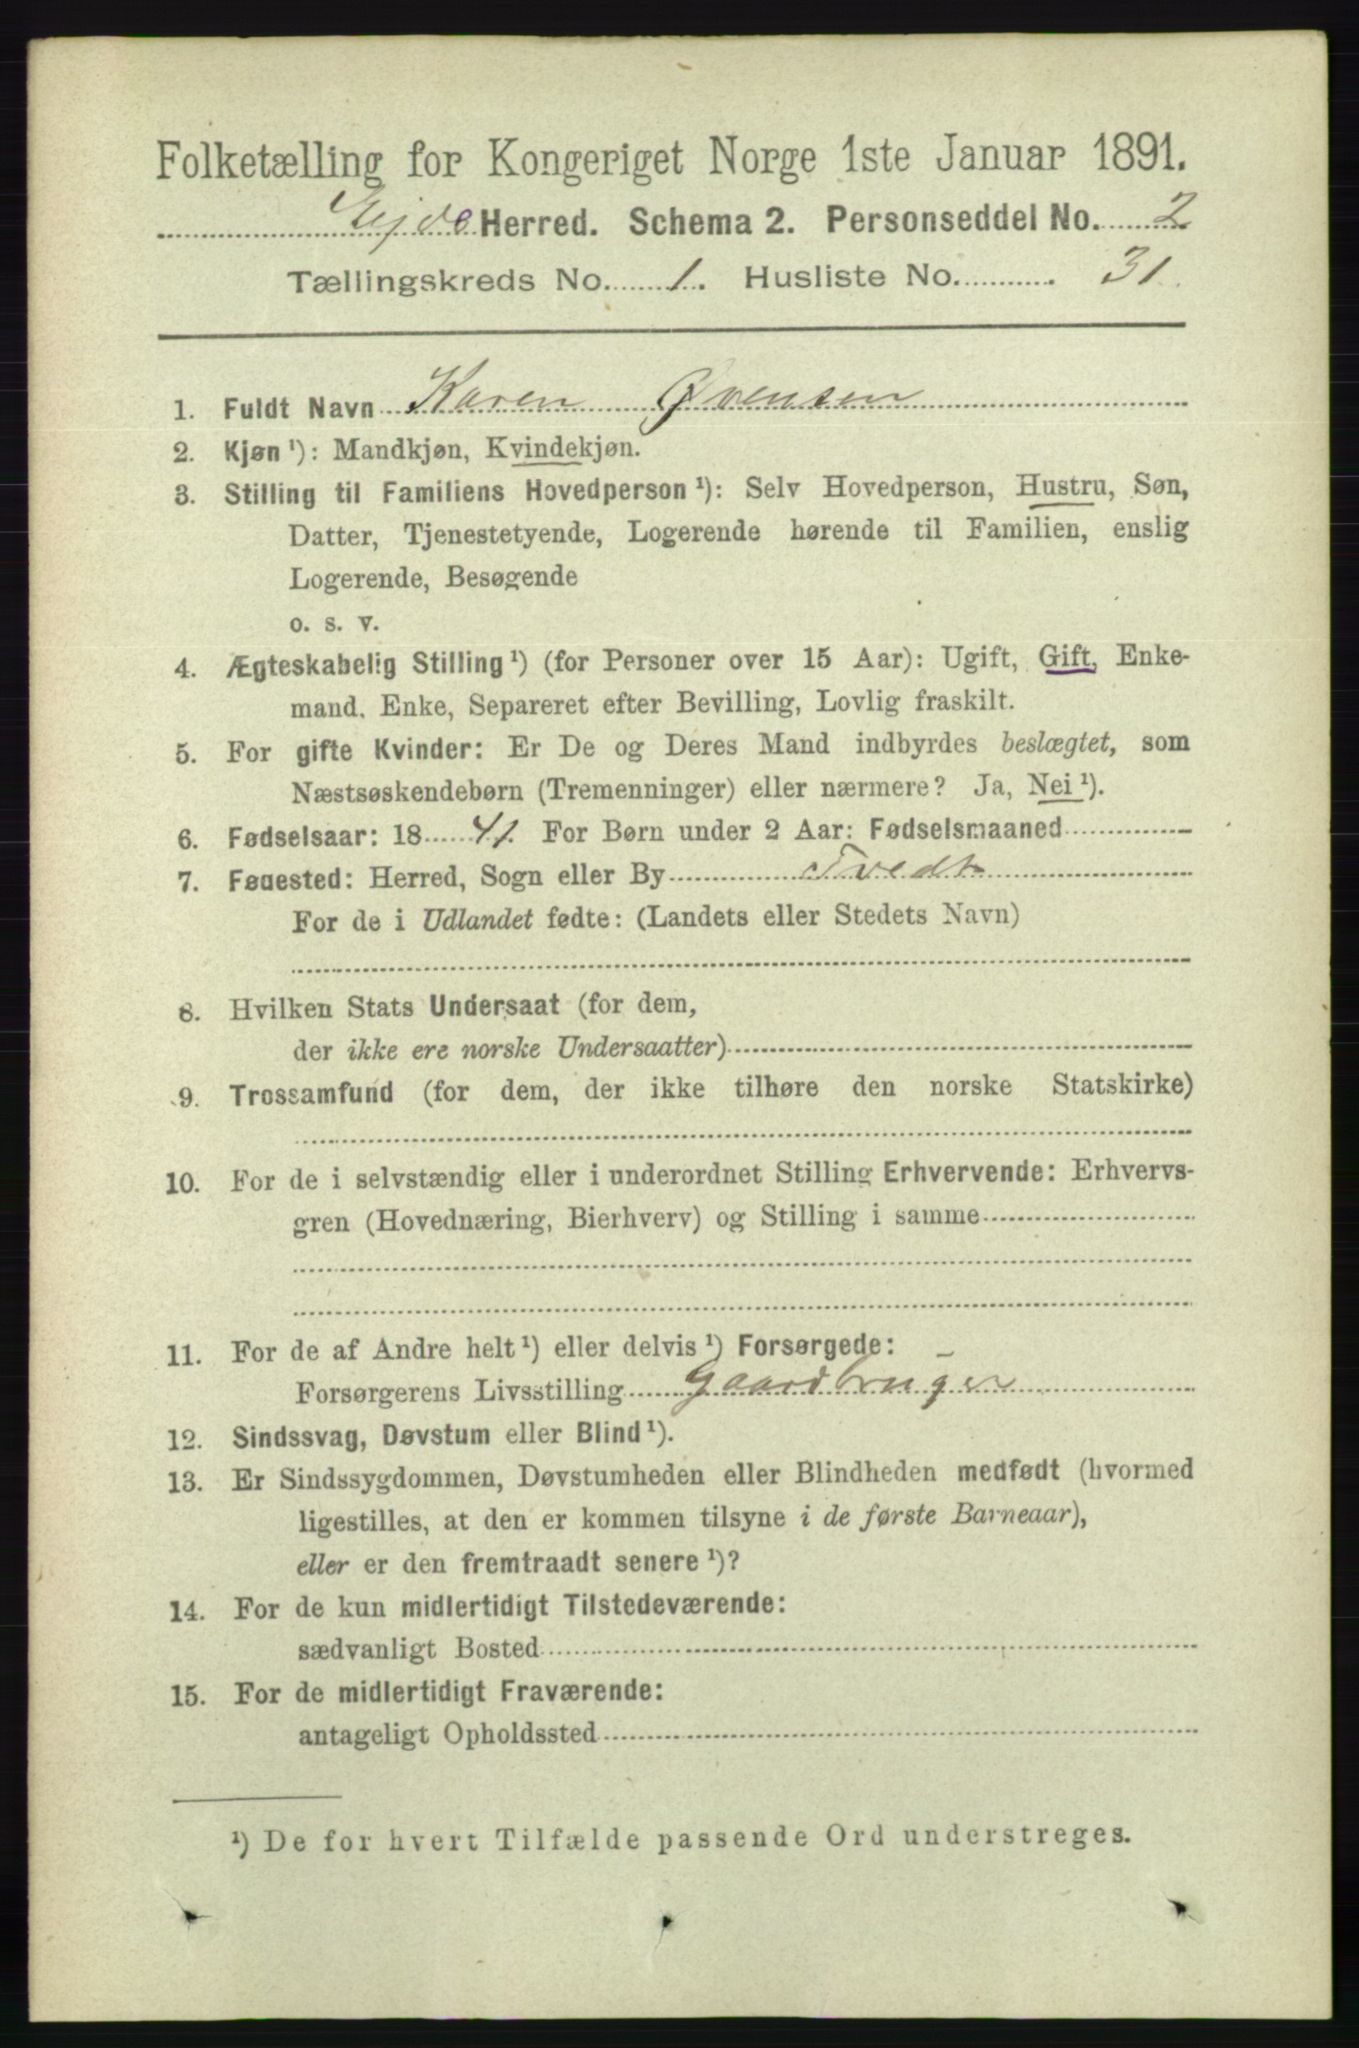 Folketælling for Kongeriget Norge 1ste Januar 1891.
Ejde Herred. Schema 2. Personseddel No. 2
Tællingskreds No. 1. Husliste No. 31
1. Fuldt Navn Karen Ovensen
2. Kjøn ¹): Mandkjøn, Kvindekjøn.
3. Stilling til Familiens Hovedperson ¹): Selv Hovedperson, Hustru, Søn,
Datter, Tjenestetyende, Logerende hørende til Familien, enslig
Logerende, Besøgende
o. s. v.
4. Ægteskabelig Stilling ¹) (for Personer over 15 Aar): Ugift, Gift, Enke-
mand, Enke, Separeret efter Bevilling, Lovlig fraskilt.
5. For gifte Kvinder: Er De og Deres Mand indbyrdes beslægtet, som
Næstsøskendebørn (Tremenninger) eller nærmere? Ja, Nei ¹).
6. Fødselsaar: 18 41. For Børn under 2 Aar: Fødselsmaaned
7. Fødested: Herred, Sogn eller By Tvedt
For de i Udlandet fødte: (Landets eller Stedets Navn)
8. Hvilken Stats Undersaat (for dem,
der ikke ere norske Undersaatter)
9. Trossamfund (for dem, der ikke tilhøre den norske Statskirke)
10. For de i selvstændig eller i underordnet Stilling Erhvervende: Erhvervs-
gren (Hovednæring, Bierhverv) og Stilling i samme
11. For de af Andre helt ¹) eller delvis ¹) Forsørgede:
Forsørgerens Livsstilling Gaardbruger
12. Sindssvag, Døvstum eller Blind ¹).
13. Er Sindssygdommen, Døvstumheden eller Blindheden medfødt (hvormed
ligestilles, at den er kommen tilsyne i de første Barneaar),
eller er den fremtraadt senere ¹)?
14. For de kun midlertidigt Tilstedeværende:
sædvanligt Bosted
15. For de midlertidigt Fraværende:
antageligt Opholdssted
¹) De for hvert Tilfælde passende Ord understreges.